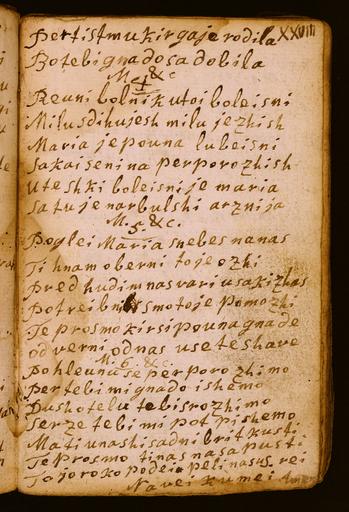 XXVIII
Pertistmu kir ga je rodila
Bo tebi gnado sadobila
M. 4 &c
Reuni bolnik v toi boleisni
Milusdihujesh milu jezhish
Maria je pouna lubeisni
Sakai se ni na per porozhish
Vteshki boleisni je maria
Sa tu je narbulshi arznija
M. 5. &c.
Poglei Maria snebes na nas
Ti k nam oberni toje ozhi
Pred hudim nas vari usaki zhas
Potreibni smo toje pomozhi
Te prosmo kir si pouna gnade
od verni od nas use teshave
M. 6. &c.
Pohleuna se per porozhimo
Per tebi mi gnado ishemo
Dusho telu tebi srozhimo
Serze tebi mi pot pishemo
Mati vnashi sadni britkusti
Te prosmo ti nas na sapusti
To joroko podei peli nas us rei
Na vei kumei Amen